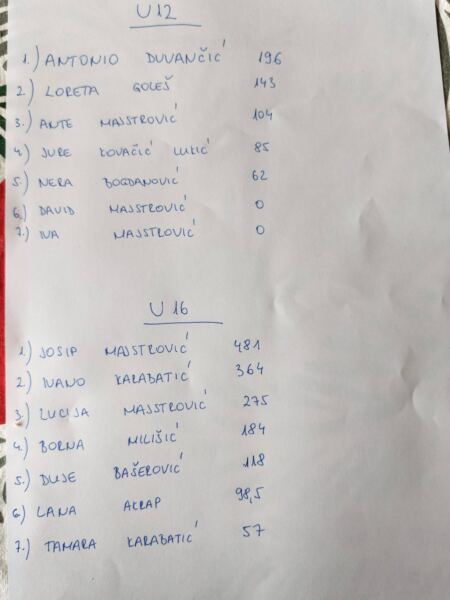 U12
1.) ANTONIO DUVANČIĆ 196
2.) LORETA GOLEŠ 143
3.) ANTE MAJSTROVIĆ 104
4.) JURE KOVAČIĆ LUKIĆ 85
5.) NERA BOGDANOVIĆ 62
6.) DAVID MAJSTROVIĆ 0
7.) IVA MAJSTROVIĆ 0
U 16
1.) JOSIP MAJSTROVIĆ 481
2.) IVANO KARABATIĆ 364
3.) LUCIJA MAJSTROVIĆ 275
4.) BORNA MILIŠIĆ 184
5.) DUJE BAŠEROVIĆ 118
6.) LANA AKRAP 98,5
7.) TAMARA KARABATIĆ 57